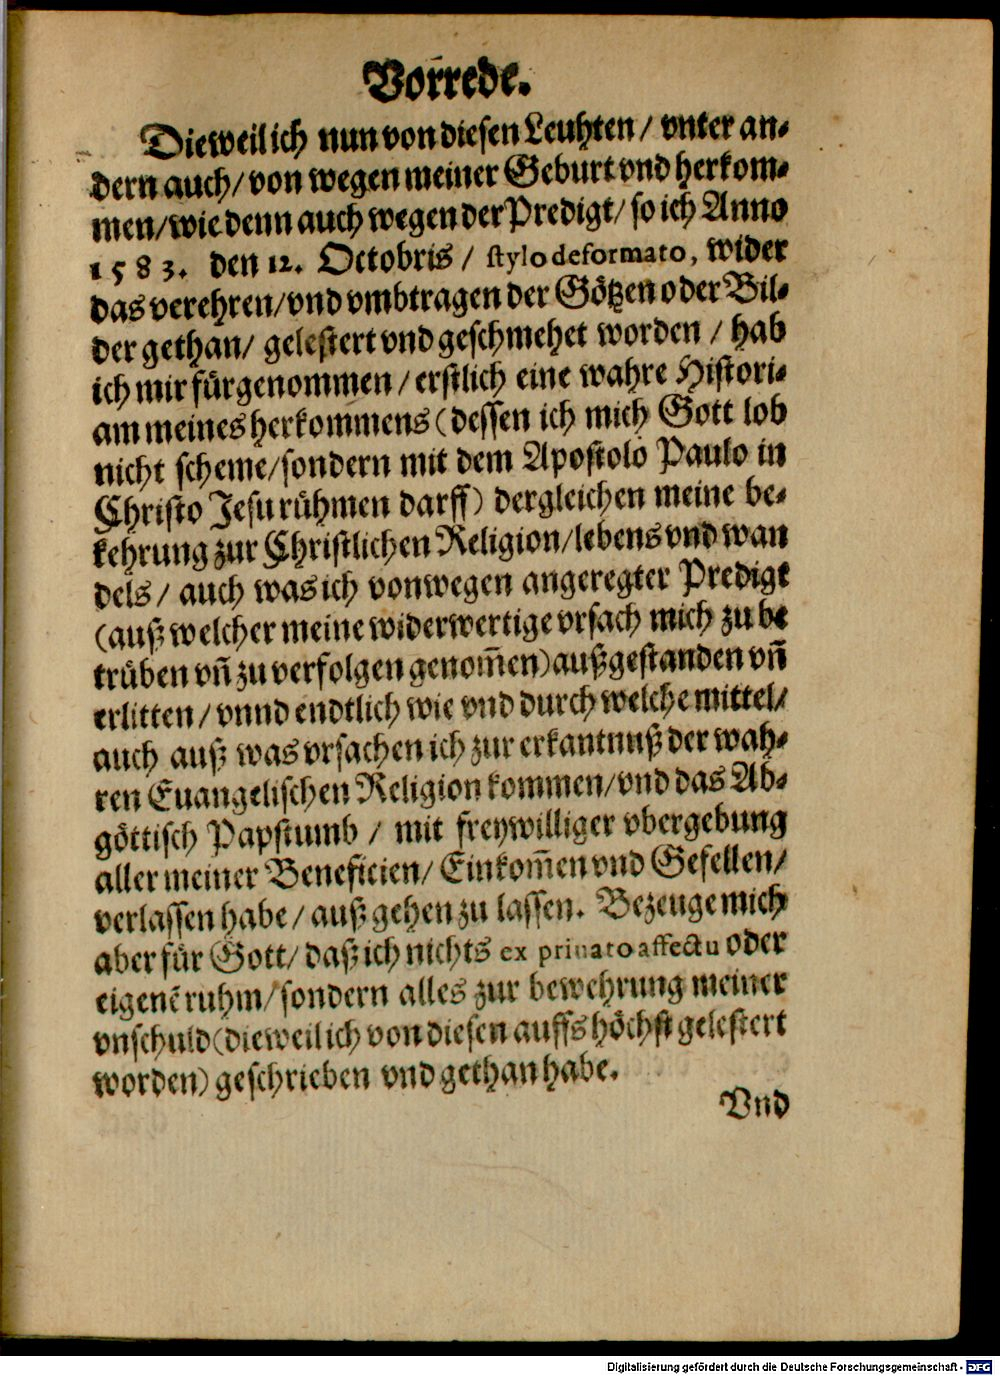 Vorrede.
Dieweil ich nun von diesen Leuhten / vnter an⸗
dern auch / von wegen meiner Geburt vnd herkom⸗
men / wie denn auch wegen der Predigt / so ich Anno
1583. den 12. Octobris / stylo deformato, wider
das verehren / vnd vmbtragen der Götzen oder Bil⸗
der gethan / gelestert vnd geschmehet worden / hab
ich mir fürgenommen / erstlich eine wahre Histori⸗
am meines herkommens (dessen ich mich Gott lob
nicht scheme / sondern mit dem Apostolo Paulo in
Christo Jesu rühmen darff) dergleichen meine be⸗
kehrung zur Christlichen Religion / lebens vnd wan
dels / auch was ich von wegen angeregter Predigt
(auß welcher meine widerwertige vrsach mich zu be
trüben vñ zu verfolgen genom̃en) außgestanden vñ
erlitten / vnnd endtlich wie vnd durch welche mittel /
auch auß was vrsachen ich zur erkantnuß der wah⸗
ren Euangelischen Religion kommen / vnd das Ab⸗
göttisch Papstumb / mit freywilliger vbergebung
aller meiner Beneficien / Einkom̃en vnd Gefellen /
verlassen habe / auß gehen zu lassen. Bezeuge mich
aber für Gott / daß ich nichts ex priuato affectu oder
eigenẽ ruhm / sondern alles zur bewehrung meiner
vnschuld (dieweil ich von diesen auffs höchst gelestert
worden) geschrieben vnd gethan habe.
Vnd
Digitalisierung gefördert durch die Deutsche Forschungsgemeinschaft - DFG